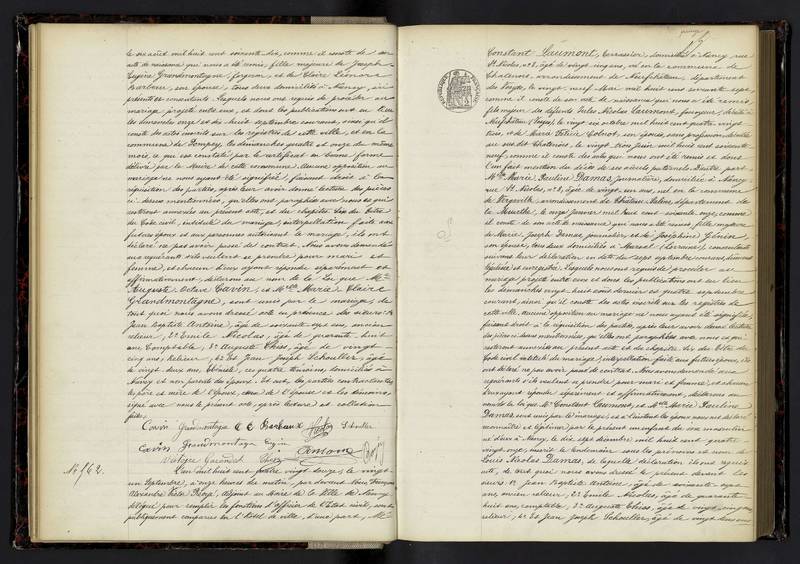 le six août mil huit cent soixante dix, comme il conste de son
acte de naissance qui nous a été remis, fille majeure de Joseph
Eugène Grandmontagne, forgeron, et de Claire Léonore
Barbeux, son épouse, tous deux domiciliés à Nancy, ici
présents et consentants. Lesquels nous ont requis de procéder au
mariage projeté entre eux, et dont les publications ont eu lieu
les dimanches onze et dix huit septembre courant, ainsi qu'il
conste des actes inscrits sur les registres de cette ville, et en la
commune de Pompey, les dimanches quatre et onze du même
mois, ce qui est constaté par le certificat en bonne forme
délivré par le Maire de cette commune. Aucune opposition au
mariage ne nous ayant été signifiée, faisant droit à la
réquisition des parties, après leur avoir donné lecture des pièces
ci-dessus mentionnées, qu'elles ont paraphées avec nous et qui
resteront annexées au présent acte, et du chapitre six du titre
du Code civil, intitulé du mariage, interpellation faite aux
futurs époux et aux personnes autorisant le mariage, ils ont
déclaré ne pas avoir passé de contrat. Nous avons demandé
aux requérants s'ils veulent se prendre pour mari et
femme, et chacun d'eux ayant répondu séparément et
affirmativement, déclarons au nom de la Loi que Mr
Auguste Octave Cavin, et Melle Marie Claire
Grandmontagne, sont unis par le mariage, de
tout quoi nous avons dressé acte en présence des sieurs: 1°
Jean Baptiste Antoine, âgé de soixante sept ans, ancien
relieur, 2° Emile Nicolas, âgé de quarante huit
ans, Comptable, 3° Auguste Thiss, âgé de vingt
cinq ans, Relieur, 4° Et Jean Joseph Schoulter, âgé
de vingt deux ans, Ebéniste, ces quatre témoins domiciliés à
Nancy et non parents des époux. Et ont, les parties contractantes
les père et mère de l'épouse et les témoins,
signé avec nous le présent acte, après lecture et collation
faites.
Cavin Grandmontagne C E Barbeux
Cavin Grandmontagne Eugène Antoine
N° 762.
L'an mil huit cent quatre vingt douze, le vingt
un Septembre, à onze heures du matin, par devant Nous François
Alexandre Victor, adjoint au Maire de la Ville de Nancy
délégué pour remplir les fonctions d'officier de l'Etat civil, sont
publiquement comparus en l'hôtel de ville, d'une part, Mr
Constant Caremont, Terrassier, domicilié à Nancy rue
St Nicolas, n° 8, âgé de vingt cinq ans, né en la commune de
Chatenois, arrondissement de Neufchâteau, département
des Vosges, le vingt neuf Mai mil huit cent soixante sept,
comme il conste de son acte de naissance qui nous a été remis,
fils majeur de défunts Jules Nicolas Caremont, décédé à
Neufchâteau (Vosges), le vingt six octobre mil huit cent quatre vingt
trois, et de Marie Félicie Colnot, son épouse, sans profession, décédée
au dit Chatenois, le vingt trois Juin mil huit cent soixante
neuf, comme il conste des actes qui nous ont été remis et dont
l'un fait mention du décès de ses aïeuls paternels. D'autre part
Melle Marie Pauline Damas, Journalière, domiciliée à Nancy
rue St Nicolas, n° 8, âgée de vingt un ans, née en la commune
de Vergaville, arrondissement de Château Salins, département de
la Meurthe, le Janvier mil huit cent soixante onze, comme il
conste de son acte de naissance qui nous a été remis, fille majeure
de Marie Joseph Damas, journalier, et de Joséphine Génin
son épouse, tous deux domiciliés à Marsal (Lorraine), consentants
suivant leur déclaration en date du sept septembre courant, dûment
légalisée et enregistrée. Lesquels nous ont requis de procéder au
mariage projeté entre eux et dont les publications ont eu lieu
les dimanches vingt huit août dernier et quatre septembre
courant, ainsi qu'il conste des actes inscrits sur les registres de
cette ville, aucune opposition au mariage ne nous ayant été signifiée,
faisant droit à la réquisition des parties, après leur avoir donné lecture
des pièces ci-dessus mentionnées, qu'elles ont paraphées avec nous et qui
resteront annexées au présent acte, et du chapitre six du titre du
Code civil intitulé du mariage, interpellation faite aux futurs époux, ils
ont déclaré ne pas avoir passé de contrat. Nous avons demandé aux
requérants s'ils veulent se prendre pour mari et femme, et chacun
d'eux ayant répondu séparément et affirmativement, déclarons au
nom de la Loi que Mr Constant Caremont, et Melle Marie Pauline
Damas sont unis par le mariage, et à l'instant les époux nous ont déclaré
reconnaître et légitimer par le présent un enfant du sexe masculin
né d'eux à Nancy, le dix sept décembre mil huit cent quatre
vingt onze, inscrit le lendemain sous les prénoms et nom de
Louis Nicolas Damas, de laquelle déclaration ils ont requis
acte, de tout quoi nous avons dressé le présent devant les
sieurs 1° Jean Baptiste Antoine, âgé de soixante sept
ans, ancien relieur, 2° Emile Nicolas, âgé de quarante
huit ans, comptable, 3° Auguste Thiss, âgé de vingt cinq ans,
relieur, 4° Et Jean Joseph Schoulter, âgé de vingt deux ans